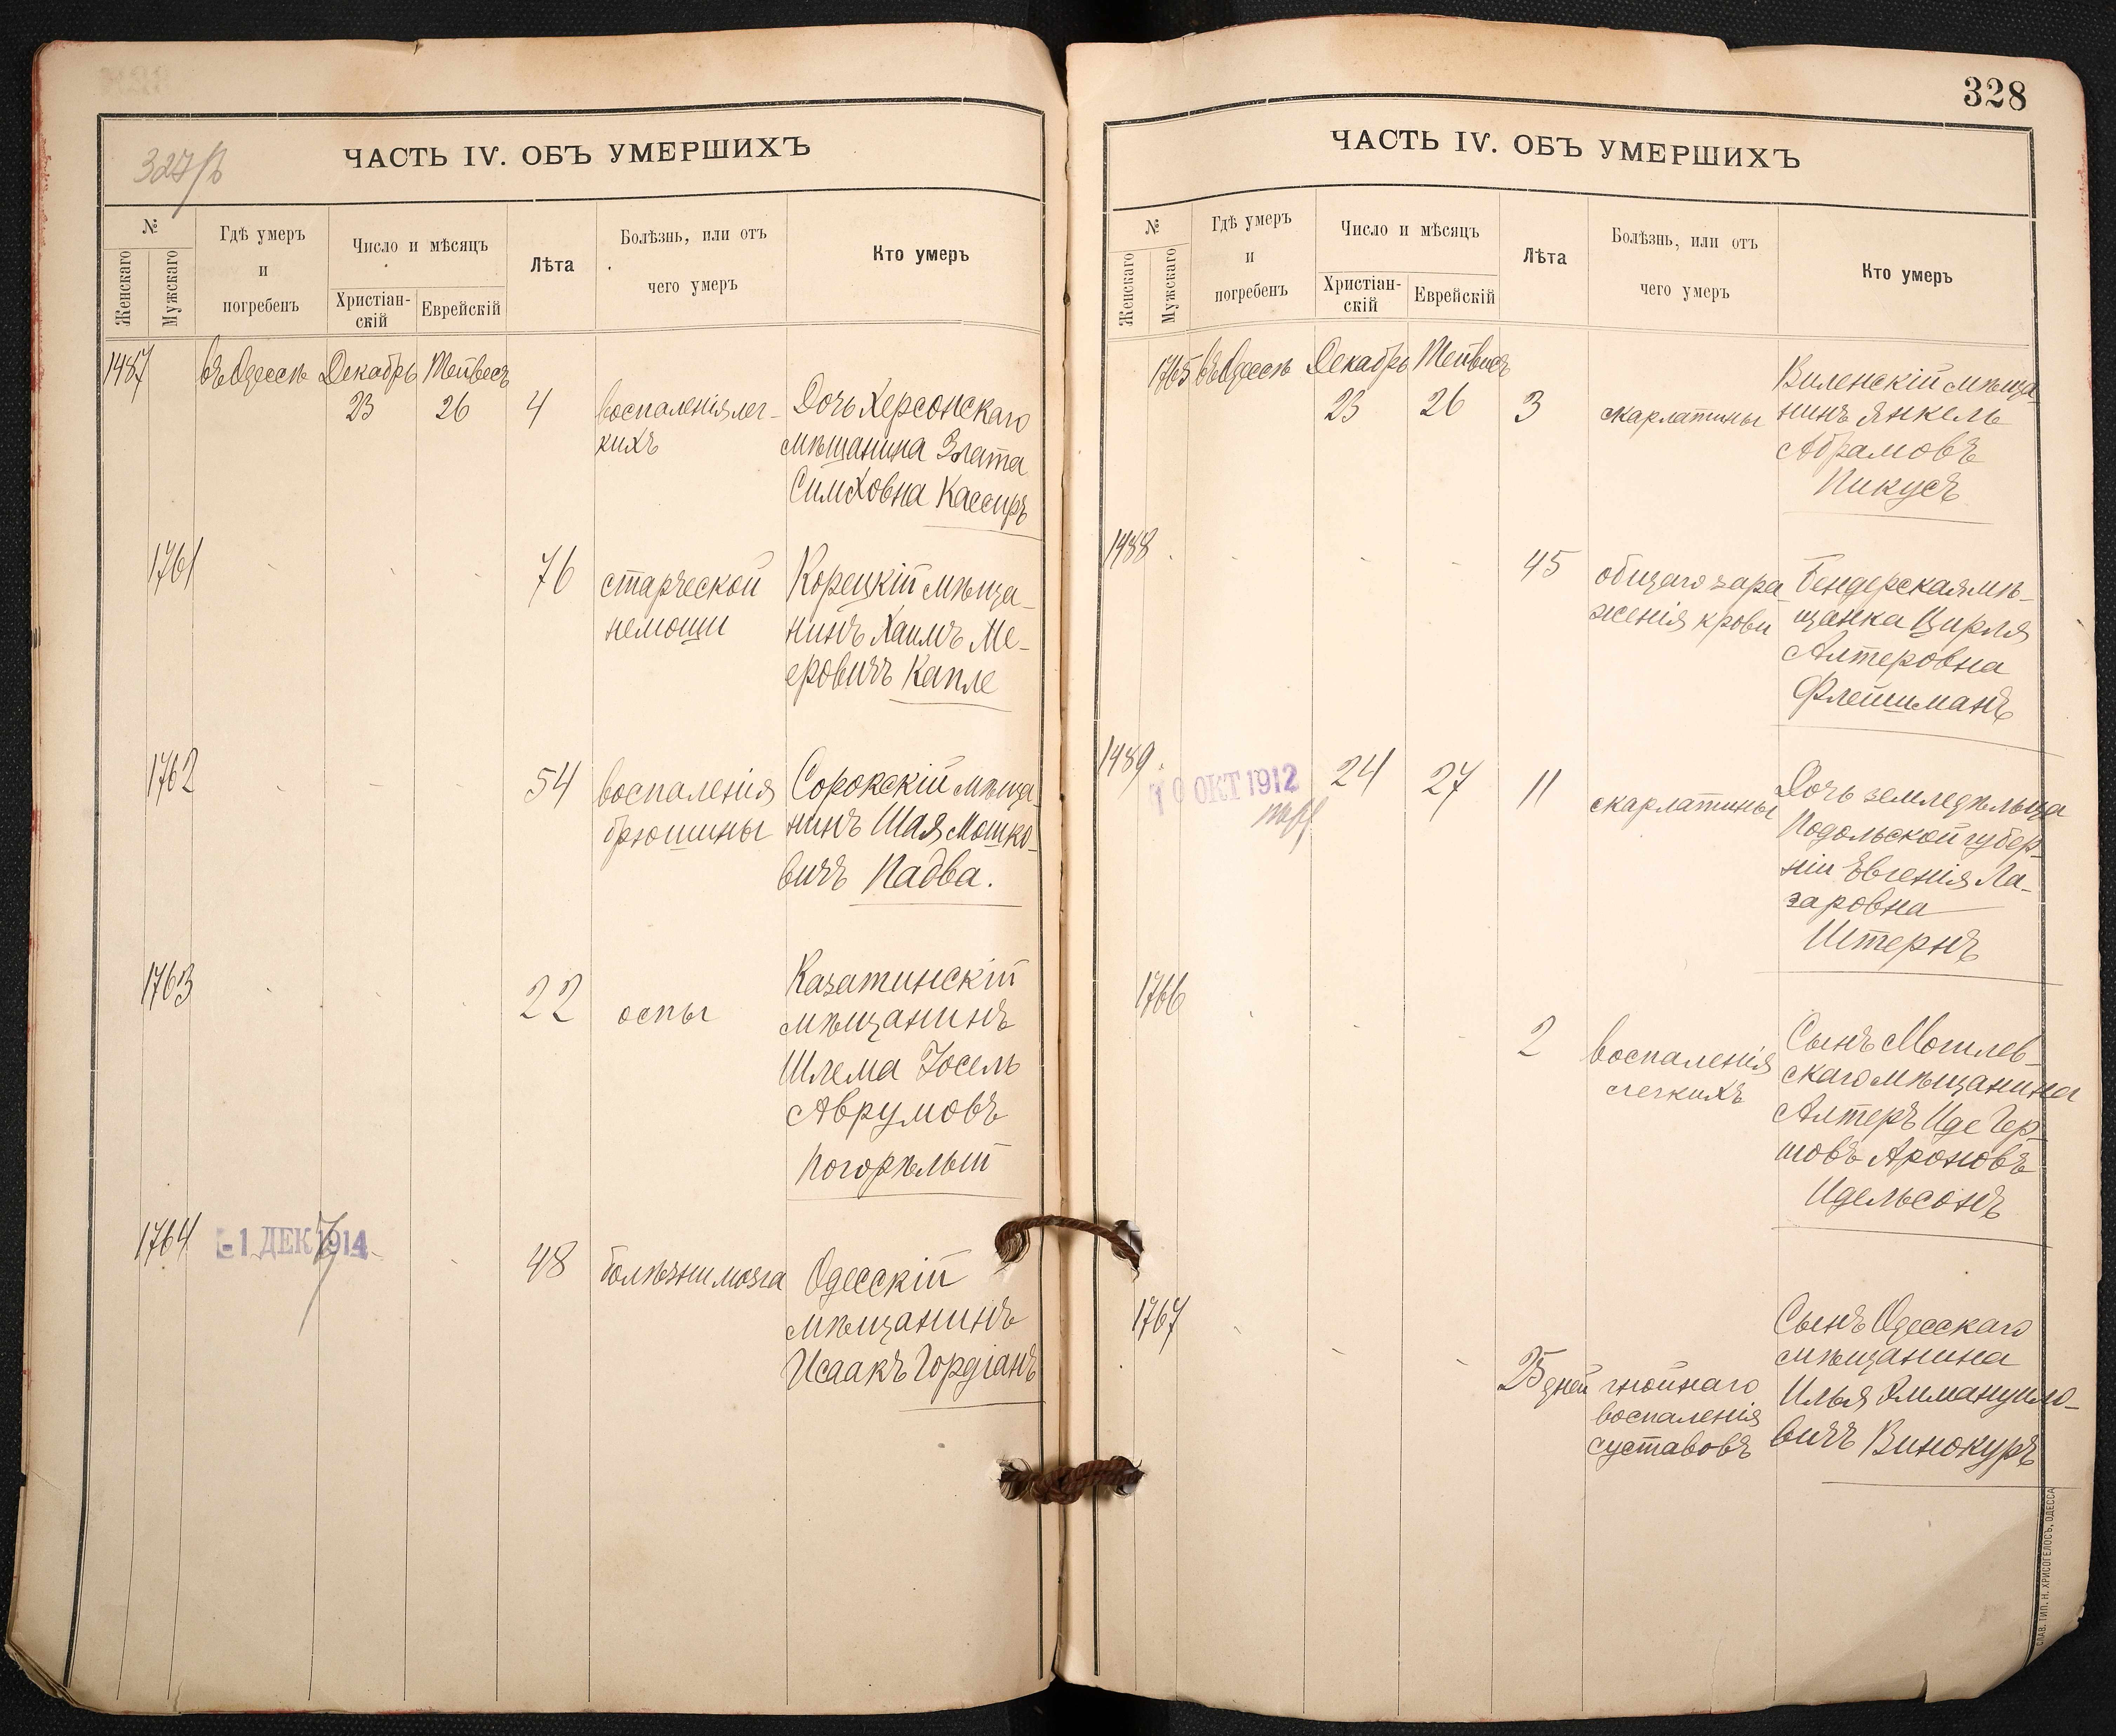 327/б
ЧАСТЬ IV. ОБЪ УМЕРШИХЪ
№
Женскаго
Мужскаго
Гдѣ умеръ
и
погребенъ
Число и мѣсяцъ
Христіан-
скій
Еврейскій
Лѣта
Болѣзнь, или отъ
чего умеръ
Кто умеръ
1487 въ Одессѣ Декабрь Тейвесъ
23 26 4 воспаленія лег-
кихъ
Дочь Херсонскаго
мѣщанина Злата
Симховна Кассиръ
1761 76 старческой
немощи
Корецкій мѣща-
нинъ Хаимъ Ме-
еровичъ Капле
1762 54 воспаленія
брюшины
Сорокскій мѣща-
нинъ Шая Мошко-
вичъ Падва.
1763 22 оспы
Казатинскій
мѣщанинъ
Шлема Іосель
Аврумовъ
Погорѣлый
1764 -1 ДЕК 1914 48 болѣзни мозга
Одесскій
мѣщанинъ
Исаакъ Гордіанъ
328
ЧАСТЬ IV. ОБЪ УМЕРШИХЪ
№
Женскаго
Мужскаго
Гдѣ умеръ
и
погребенъ
Число и мѣсяцъ
Христіан-
скій
Еврейскій
Лѣта
Болѣзнь, или отъ
чего умеръ
Кто умеръ
1765 въ Одессѣ Декабрь Тейвесъ
23 26 3 скарлатины
Виленскій мѣща-
нинъ Янкель
Абрамовъ
Пикусъ
1488 45 общаго зара-
женія крови
Бендерская мѣ-
щанка Цирля
Алтеровна
Флейшманъ
1489 10 ОКТ 1912 24 27 11 скарлатины
Дочь земледѣльца
Подольской губер-
ніи Евгенія Ла-
заровна
Штернъ
1766 2 воспаленія
легкихъ
Сынъ Могилев-
скаго мѣщанина
Алтеръ Иде Гер-
шовъ Ароновъ
Идельсонъ
1767 25 дней гнойнаго
воспаленія
суставовъ
Сынъ Одесскаго
мѣщанина
Илья Эммануило-
вичъ Винокуръ
СЛАВ. ТИП. Н. ХРИСОГЕЛОСЪ, ОДЕССА